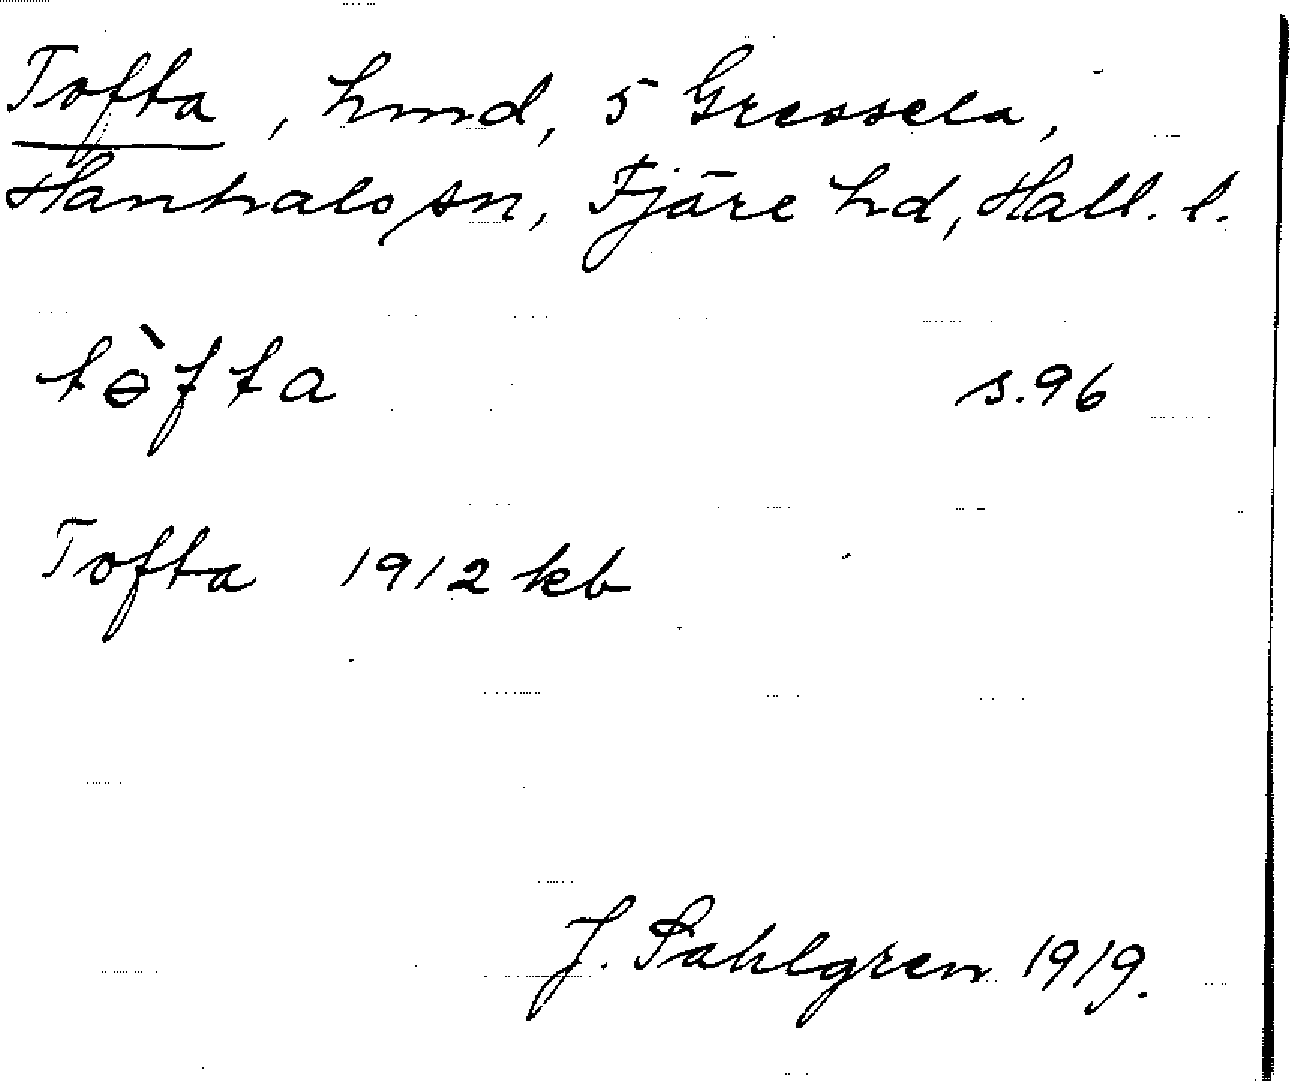 Tofta, hmd, 5 Gressela,
Hanhals sn, Fjäre hd, Hall. l.
tɵ̀fta s.96
Tofta 1912 kb
J. Sahlgren 1919.